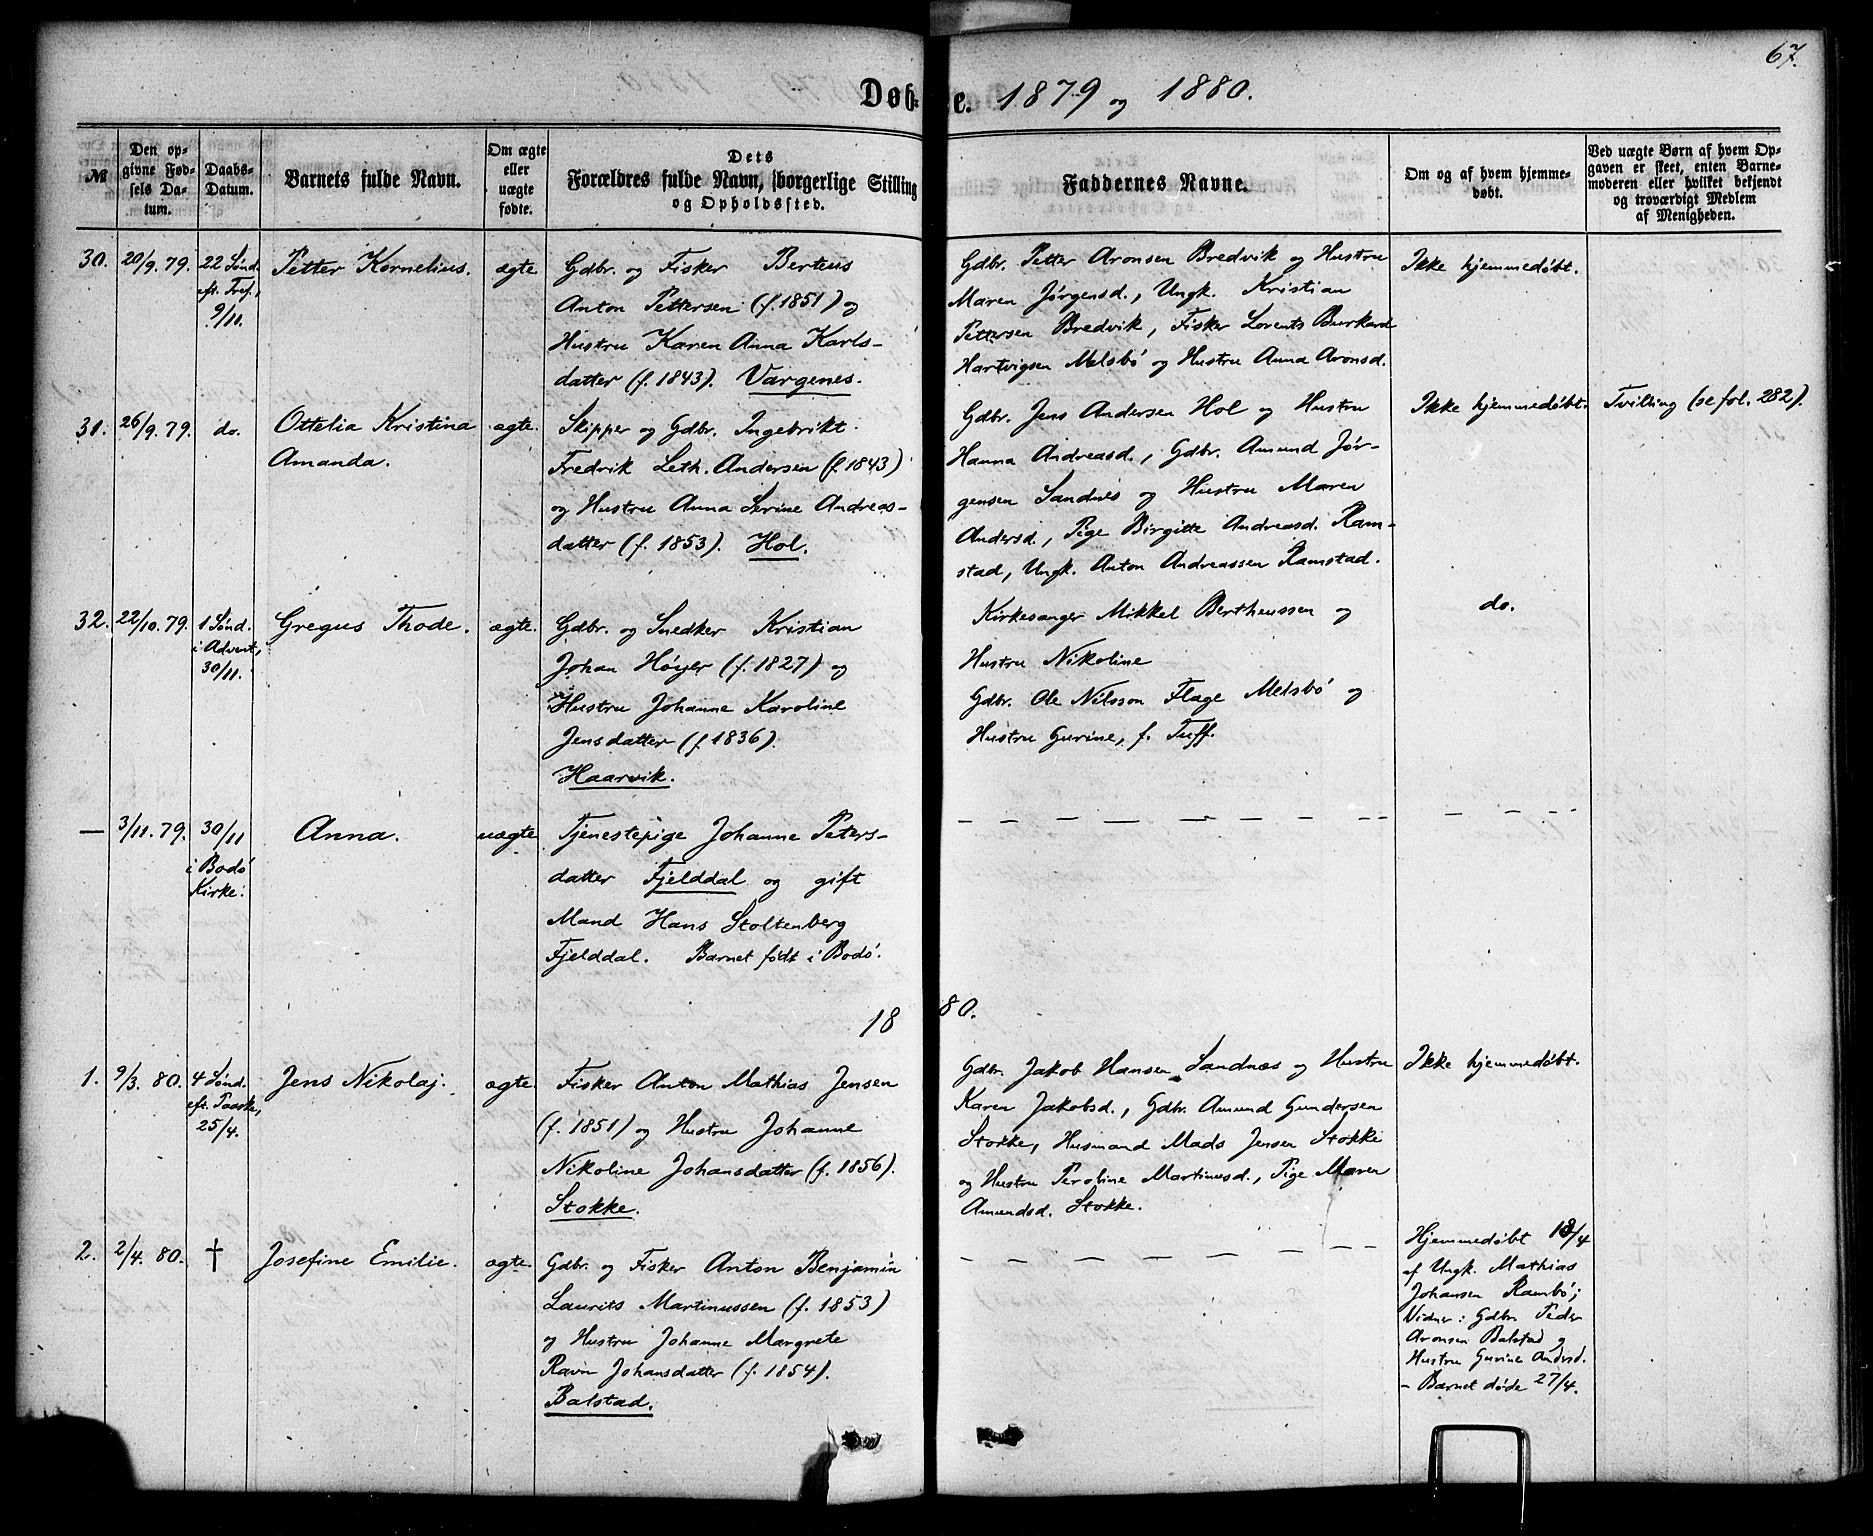 67.
Døbte. 1879 og 1880.
№
Den opgivne Fødsels Datum.
Daabs-Datum.
Barnets fulde Navn.
Om ægte eller uægte fødte.
Dets Forældres fulde Navn, borgerlige Stilling og Opholdssted.
Faddernes Navne.
Om og af hvem hjemmedøbt.
Ved uægte Børn af hvem Opgaven er skeet, enten Barnemoderen eller hvilket bekjendt og troværdigt Medlem af Menigheden.
30.
20/9. 79.
22 Sønd.
eft. Tref.,
9/11.
Petter Kornelius.
ægte
Gdbr. og Fisker Berteus
Anton Pettersen (f. 1851) og
Hustru Karen Anna Karls-
datter (f. 1843). Vargenes.
Gdbr. Petter Aronsen Bredvik og Hustru
Maren Jørgensd., Ungk. Kristian
Pettersen Bredvik, Fisker Lorents Burkard
Hartvigsen Melsbö og Hustru Anna Aronsd.
Ikke hjemmedøbt.
31.
26/9. 79.
do.
Ottelia Kristina
Amanda.
ægte.
Skipper og Gdbr. Ingebrikt
Fredrik Leth. Andersen (f. 1843)
og Hustru Anna Serine Andreas-
datter (f. 1853). Hol.
Gdbr. Jens Andersen Hol og Hustru
Hanna Andreasd., Gdbr. Amund Jör-
gensen Sandnes og Hustru Maren
Andersd., Pige Birgitte Andreasd. Ram-
stad, Ungk. Anton Andreassen Ramstad.
Ikke hjemmedøbt.
Tvilling (se fol. 282).
32.
22/10. 79.
1 Sönd.
i Advent,
30/11.
Gregus Thode.
ægte.
Gdbr. og Snedker Kristian
Johan Höyer (f. 1827) og
Hustru Johanne Karoline
Jensdatter (f. 1836).
Haarvik.
Kirkesanger Mikkel Bertheussen og
Hustru Nikoline
Gdbr. Ole Nilsson Flage Melsbö og
Hustru Gurine, f. Tuff.
do.
—
3/11. 79.
30/11
i Bodö
Kirke.
Anna.
uægte
Tjenestepige Johanne Peters-
datter Fjelddal og gift
Mand Hans Stoltenberg
Fjelddal. Barnet født i Bodö.
1880.
1.
9/3. 80.
4 Sönd.
eft. Paaske,
25/4.
Jens Nikolaj.
ægte.
Fisker Anton Mathias Jensen
(f. 1851) og Hustru Johanne
Nikoline Johansdatter (f. 1856).
Stokke.
Gdbr. Jakob Hansen Sandnæs og Hustru
Karen Jakobsd., Gdbr. Amund Gundersen
Stokke, Husmand Mads Jensen Stokke
og Hustru Peroline Martinusd., Pige Maren
Amundsd. Stokke.
Ikke hjemmedøbt.
2.
2/4. 80.
†
Josefine Emilie.
ægte.
Gdbr. og Fisker Anton Benjamin
Laurits Martinussen (f. 1853)
og Hustru Johanne Margrete
Ravn Johansdatter (f. 1854).
Balstad.
Hjemmedöbt 18/4
af Ungk. Mathias
Johansen Rambö;
Vidner: Gdbr. Peder
Aronsen Balstad og
Hustru Gurine Andersd.
– Barnet döde 27/4.